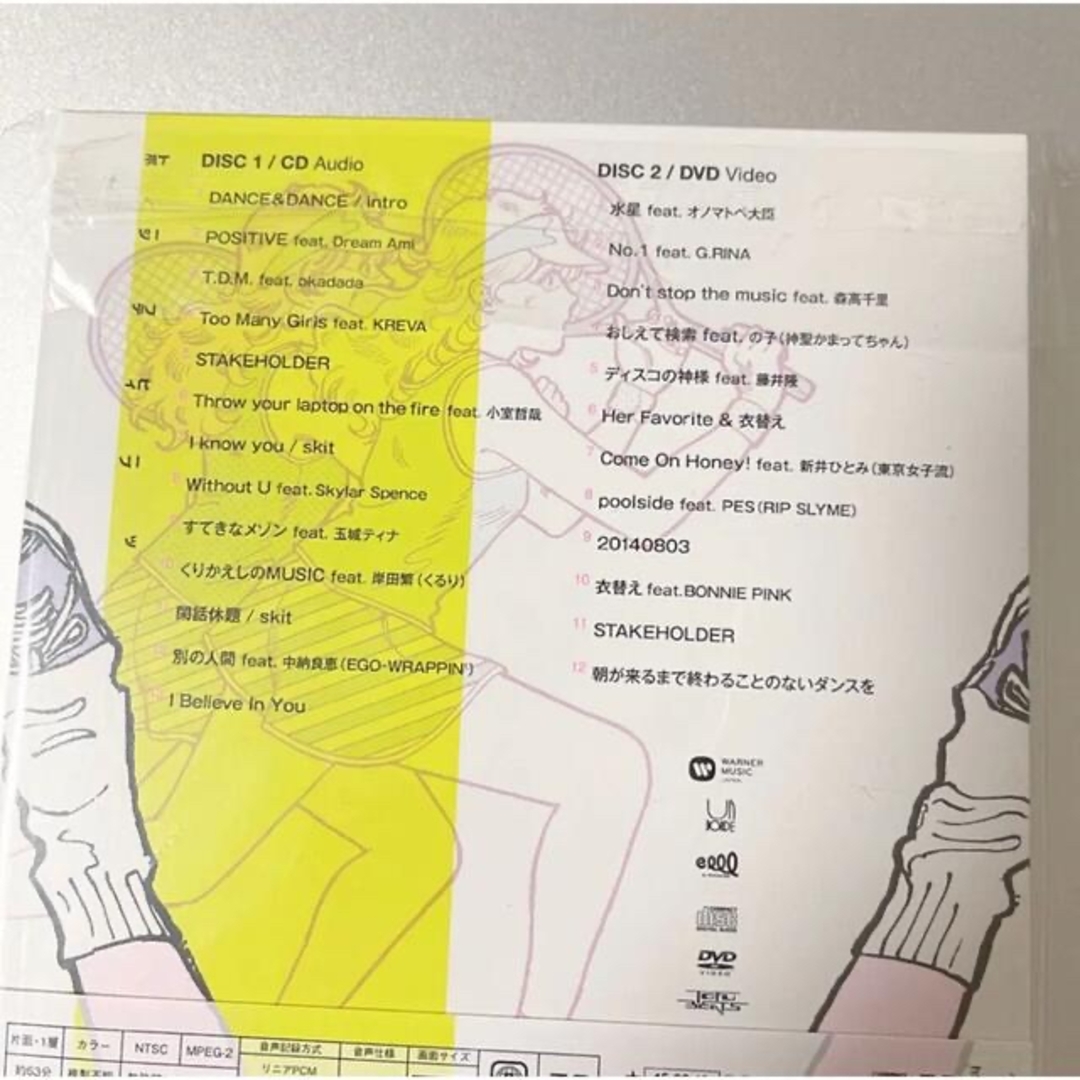 DISC 1 / CD Audio
DANCE&DANCE / intro
POSITIVE feat. Dream Ami
T.D.M. feat. okadada
Too Many Girls feat. KREVA
STAKEHOLDER
Throw your laptop on the fire feat. 小室哲哉
I know you / skit
8 Without U feat. Skylar Spence
すてきなメゾン feat. 玉城ティナ
10 くりかえしのMUSIC feat. 岸田繁(くるり)
閑話休題 / skit
別の人間 feat. 中納良恵(EGO-WRAPPIN')
I Believe In You
DISC 2 / DVD Video
水星 feat. オノマトペ大臣
No.1 feat. G.RINA
Don't stop the music feat. 森高千里
4 おしえて検索 feat. の子(神聖かまってちゃん)
5 ディスコの神様 feat. 藤井隆
6 Her Favorite & 衣替え
7 Come On Honey! feat. 新井ひとみ(東京女子流)
8 poolside feat. PES(RIP SLYME)
9 20140803
10 衣替え feat.BONNIE PINK
11 STAKEHOLDER
12 朝が来るまで終わることのないダンスを
WARNER MUSIC JAPAN
DVD VIDEO
片面・1層 カラー NTSC MPEG-2 音声記録方式 音声仕様 画面サイズ
約53分 リニアPCM